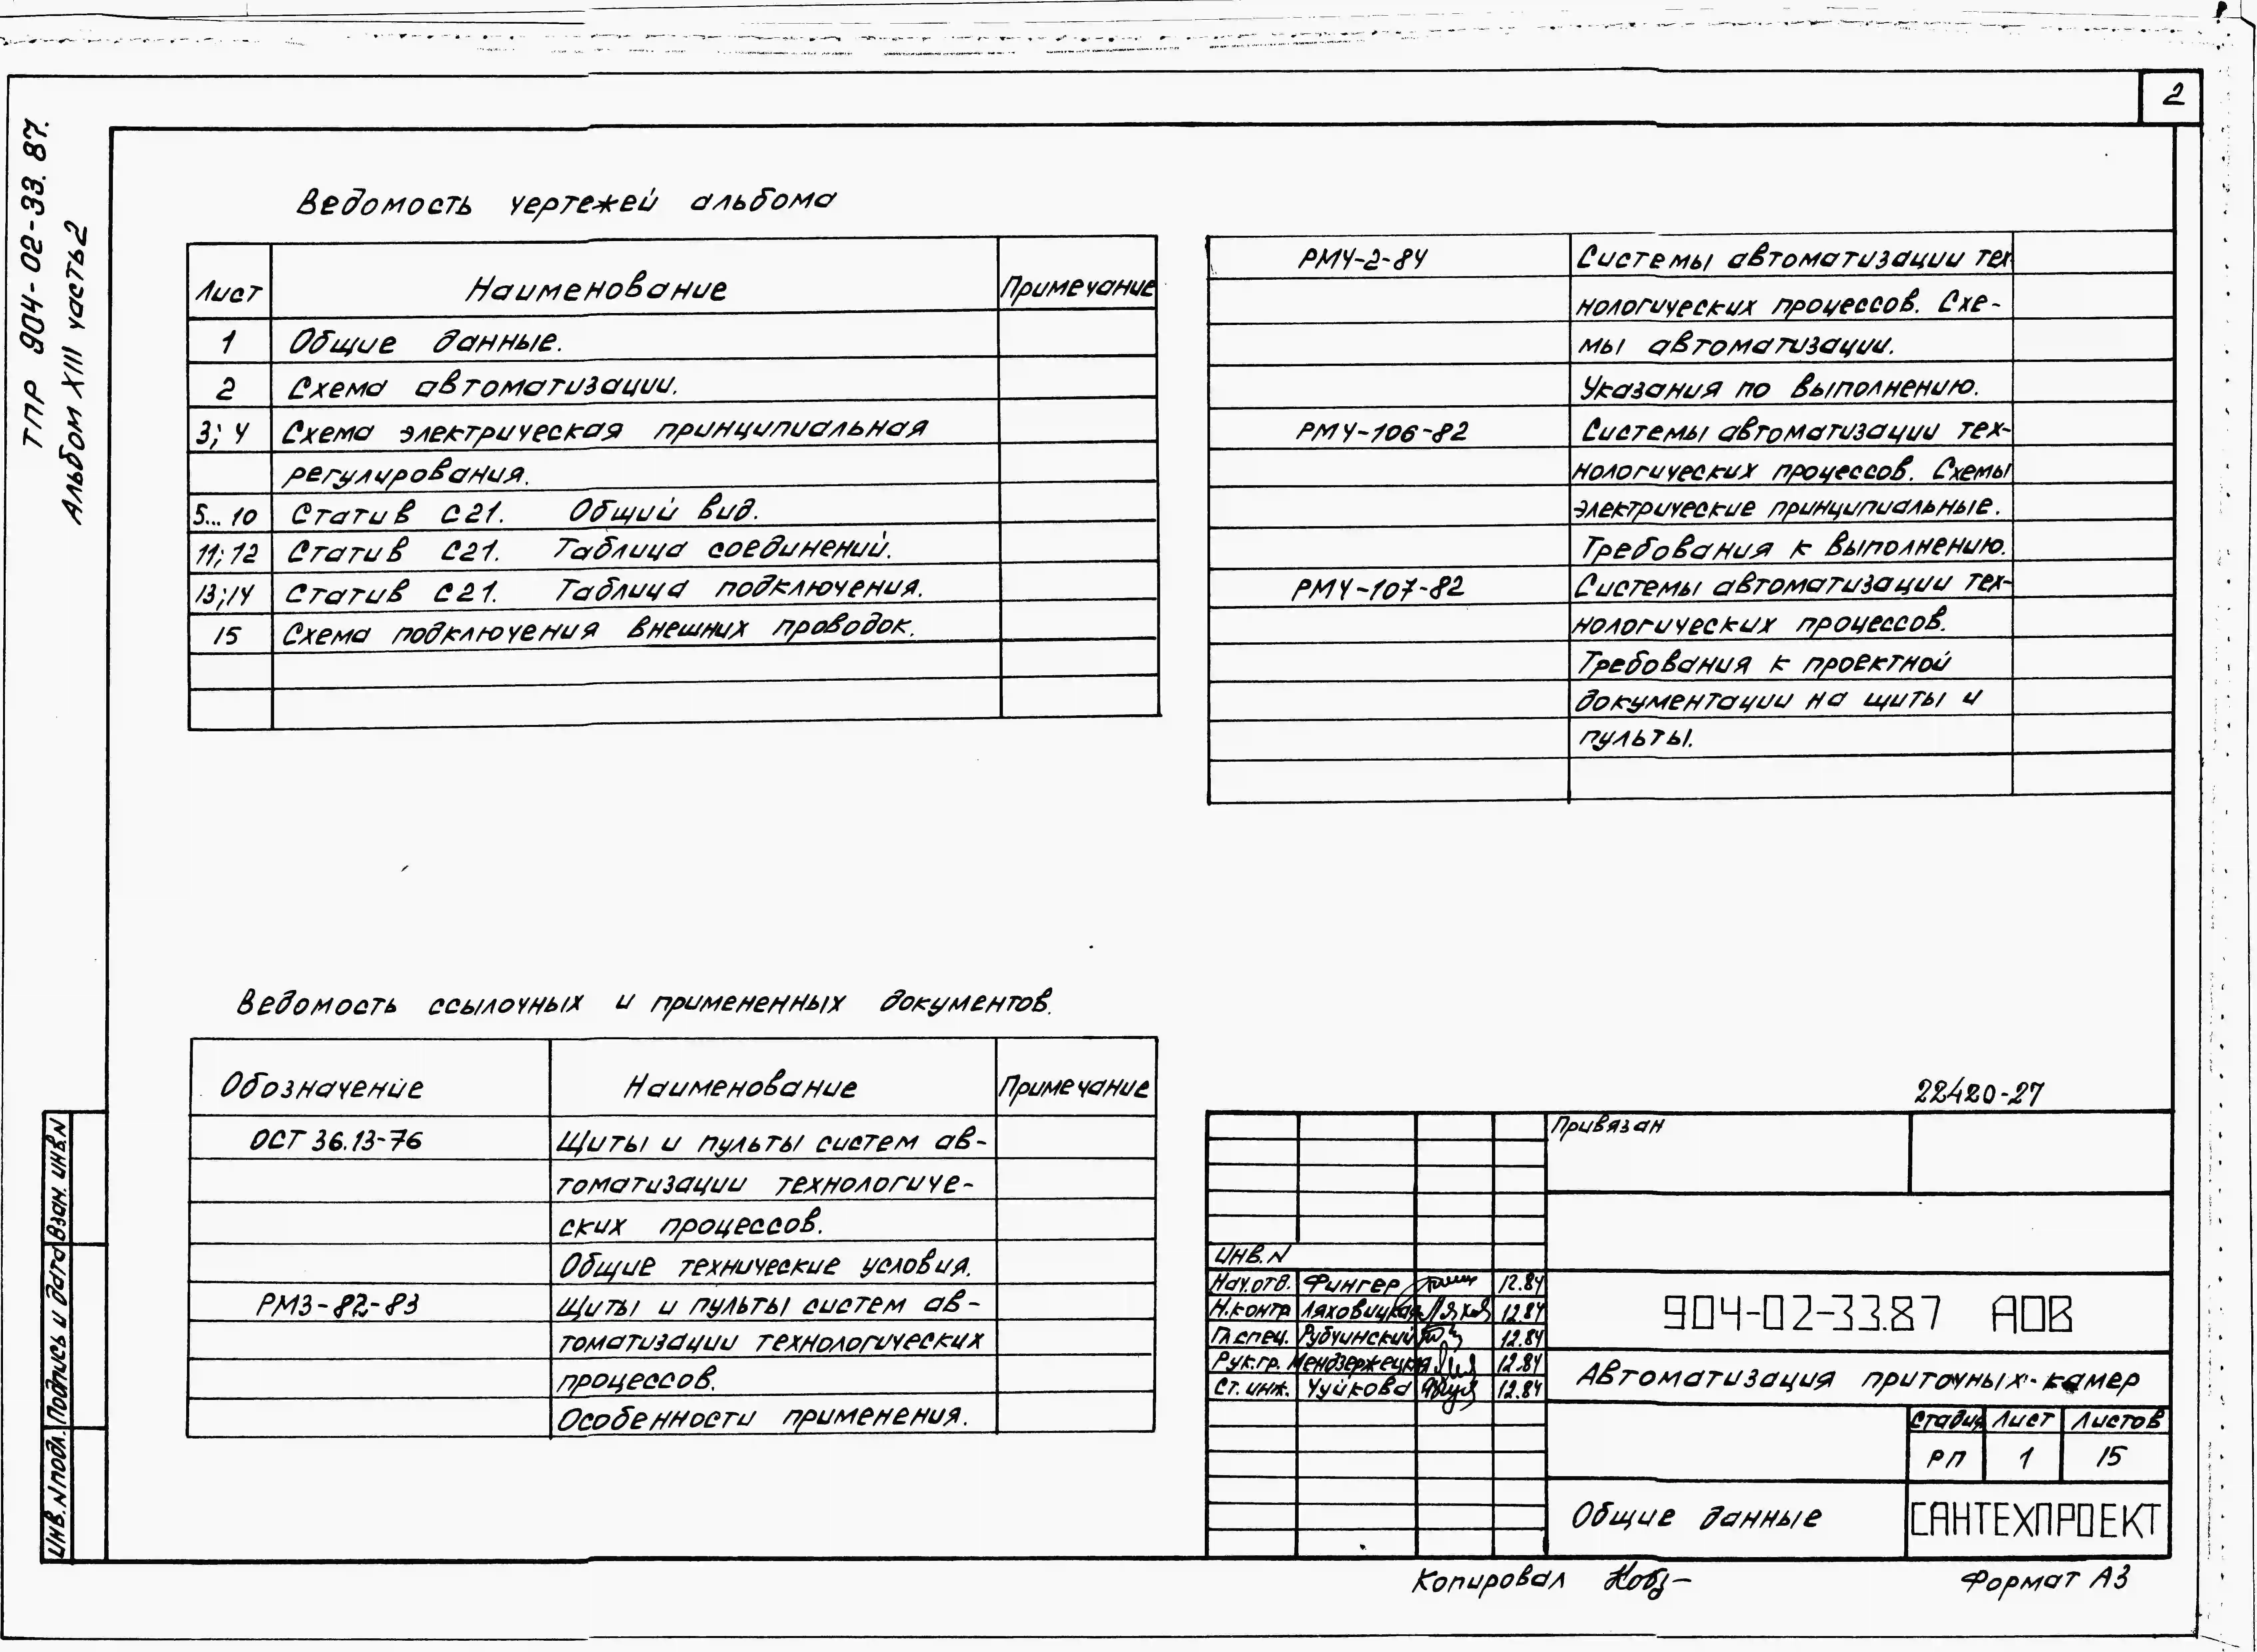 2
ТПР 904-02-33.87.
Альбом XIII часть 2
Ведомость чертежей альбома
Лист Наименование Примечание
1 Общие данные.
2 Схема автоматизации.
3; 4 Схема электрическая принципиальная
регулирования.
5...10 Статив С21. Общий вид.
11; 12 Статив С21. Таблица соединений.
13; 14 Статив С21. Таблица подключения.
15 Схема подключения внешних проводок.
РМ4-2-84 Системы автоматизации тех
нологических процессов. Схе-
мы автоматизации.
Указания по выполнению.
РМ4-106-82 Системы автоматизации тех-
нологических процессов. Схемы
электрические принципиальные.
Требования к выполнению.
РМ4-107-82 Системы автоматизации тех-
нологических процессов.
Требования к проектной
документации на щиты и
пульты.
Ведомость ссылочных и примененных документов.
Обозначение Наименование Примечание
ОСТ 36.13-76 Щиты и пульты систем ав-
томатизации технологиче-
ских процессов.
Общие технические условия.
РМ3-82-83 Щиты и пульты систем ав-
томатизации технологических
процессов.
Особенности применения.
Инв. N подл. Подпись и дата Взам. инв. N
22420-27
Привязан
Инв. N
Нач. отд. Фингер 12.84
Н.контр Ляховицкая 12.84
Гл. спец. Рубчинский 12.84
Рук. гр. Мендзержецкая 12.84
Ст. инж. Чуйкова 12.84
904-02-33.87 АОВ
Автоматизация приточных камер
Стадия Лист Листов
РП 1 15
Общие данные
САНТЕХПРОЕКТ
Копировал
Формат А3